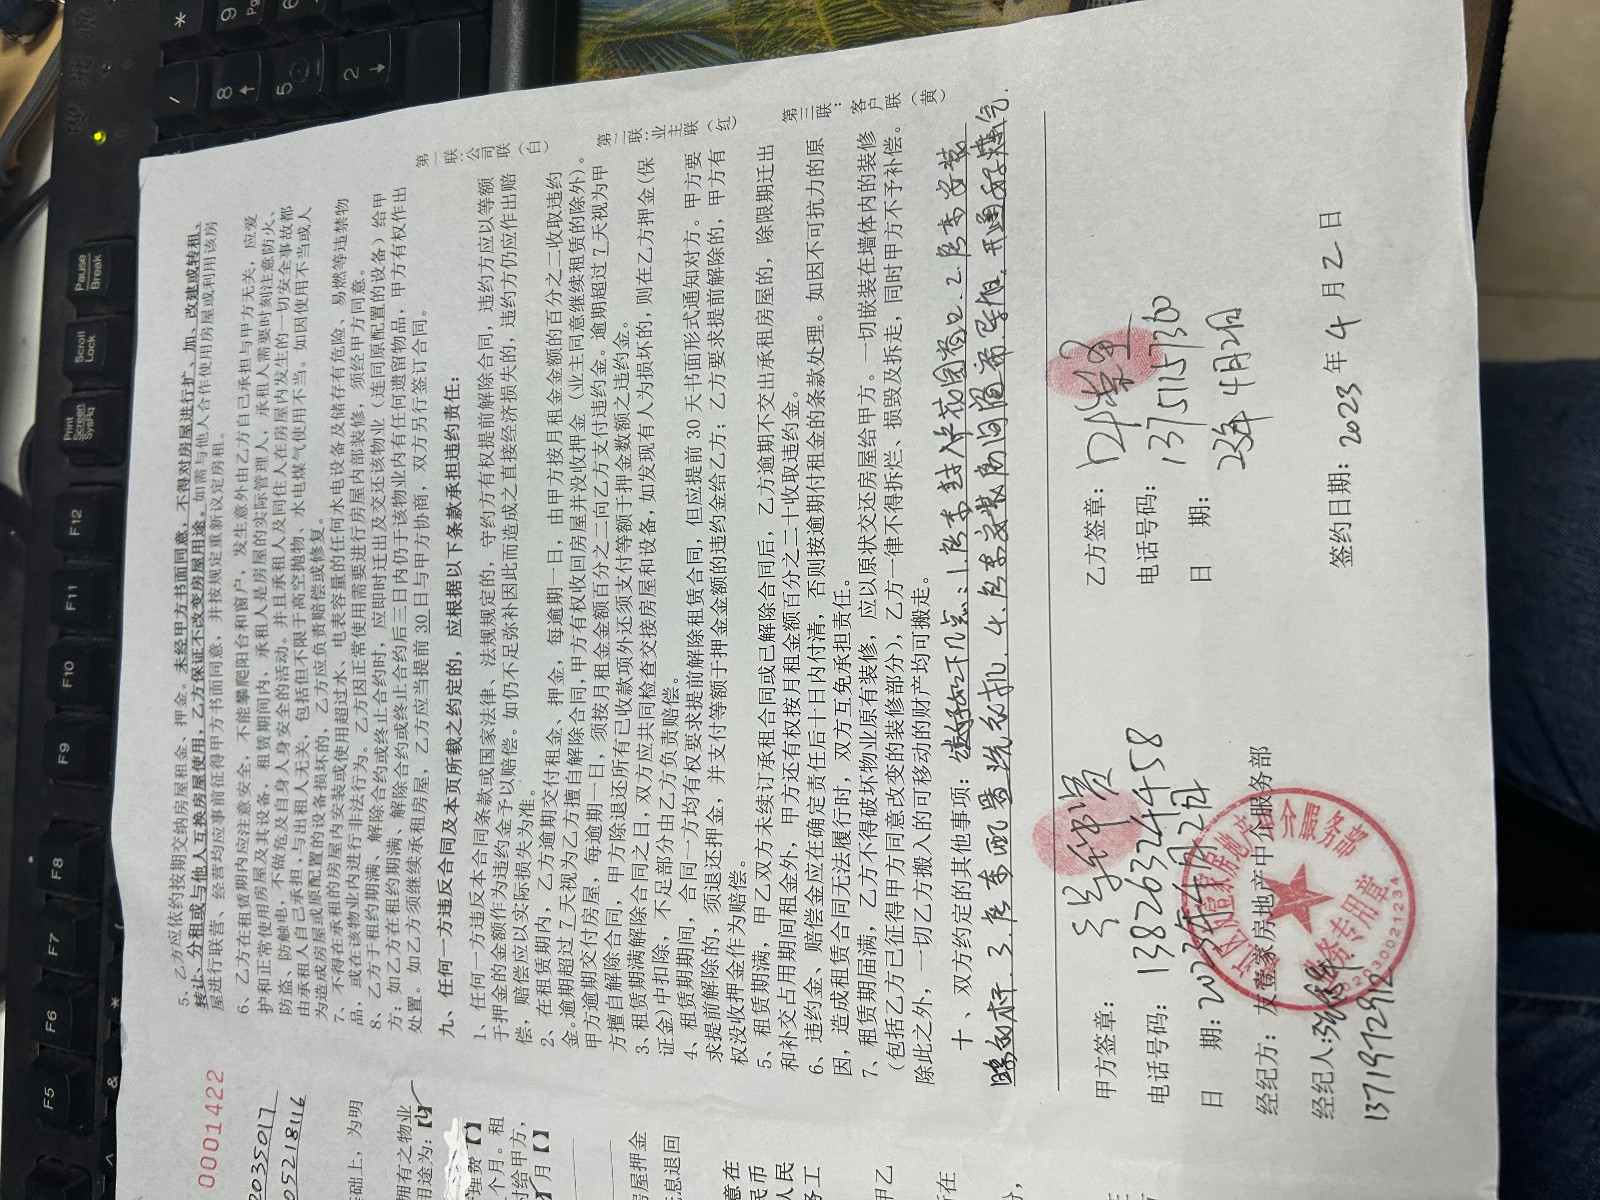 0001422
5、乙方应依约按期交纳房屋租金、押金。未经甲方书面同意，不得对房屋进行扩、加、改建或转租、
转让、分租或与他人互换房屋使用，乙方保证不改变房屋用途。如需与他人合作使用房屋或利用该房
屋进行联营、经营均应事前征得甲方书面同意，并按规定重新议定房租。
6、乙方在租赁期内应注意安全，不能攀爬阳台和窗户，发生意外由乙方自己承担与甲方无关，应爱
护和正常使用房屋及其设备，租赁期间内，承租人是房屋的实际管理人，承租人需要时刻注意防火、
防盗、防触电，不做危及自身人身安全的活动。并且承租人及同住人在房屋内发生的一切安全事故都
由承租人自己承担，与出租人无关，包括但不限于高空抛物、水电煤气使用不当。如因使用不当或人
为造成房屋或原配置的设备损坏的，乙方应负责赔偿或修复。
7、不得在承租的房屋内安装或使用超过水、电表容量的任何水电设备及储存有危险、易燃等违禁物
品，或在该物业内进行非法行为。乙方因正常使用需要进行房屋内部装修，须经甲方同意。
8、乙方于租约期满、解除合约或终止合约时，应即时迁出及交还该物业（连同原配置的设备）给甲
方；如乙方在租约期满、解除合约或终止合约后三日内仍于该物业内有任何遗留物品，甲方有权作出
处置。如乙方须继续承租房屋，乙方应当提前30日与甲方协商，双方另行签订合同。
九、任何一方违反合同及本页所载之约定的，应根据以下条款承担违约责任：
1、任何一方违反本合同条款或国家法律、法规规定的，守约方有权提前解除合同，违约方应以等额
于押金的金额作为违约金予以赔偿。如仍不足弥补因此而造成之直接经济损失的，违约方仍应作出赔
偿，赔偿应以实际损失为准。
2、在租赁期内，乙方逾期交付租金、押金，每逾期一日，由甲方按月租金金额的百分之二收取违约
金。逾期超过7天视为乙方擅自解除合同，甲方有权收回房屋并没收押金（业主同意继续租赁的除外）。
甲方逾期交付房屋，每逾期一日，须按月租金金额百分之二向乙方支付违约金。逾期超过7天视为甲
方擅自解除合同，甲方除退还所有已收款项外还须支付等额于押金数额之违约金。
3、租赁期满解除合同之日，双方应共同检查交接房屋和设备，如发现有人为损坏的，则在乙方押金(保
证金)中扣除，不足部分由乙方负责赔偿。
4、租赁期期间，合同一方均有权要求提前解除租赁合同，但应提前30天书面形式通知对方。甲方要
求提前解除的，须退还押金，并支付等额于押金金额的违约金给乙方；乙方要求提前解除的，甲方有
权没收押金作为赔偿。
5、租赁期满，甲乙双方未续订承租合同或已解除合同后，乙方逾期不交出承租房屋的，除限期迁出
和补交占用期间租金外，甲方还有权按月租金额百分之二十收取违约金。
6、违约金、赔偿金应在确定责任后十日内付清，否则按逾期付租金的条款处理。如因不可抗力的原
因，造成租赁合同无法履行时，双方互免承担责任。
7、租赁期届满，乙方不得破坏物业原有装修，应以原状交还房屋给甲方。一切嵌装在墙体内的装修
（包括乙方已征得甲方同意改变的装修部分），乙方一律不得拆烂、损毁及拆走，同时甲方不予补偿。
除此之外，一切乙方搬入的可移动的财产均可搬走。
十、双方约定的其他事项：
第一联：公司联（白）
第二联：业主联（红）
第三联：客户联（黄）
甲方签章：
电话号码：13826324458
日 期：2023年4月2日
经纪方：友壹家房地产中介服务部
经纪人：
13719712912
乙方签章：
电话号码：13751157360
日 期：23年4月2日
签约日期：2023年4月2日